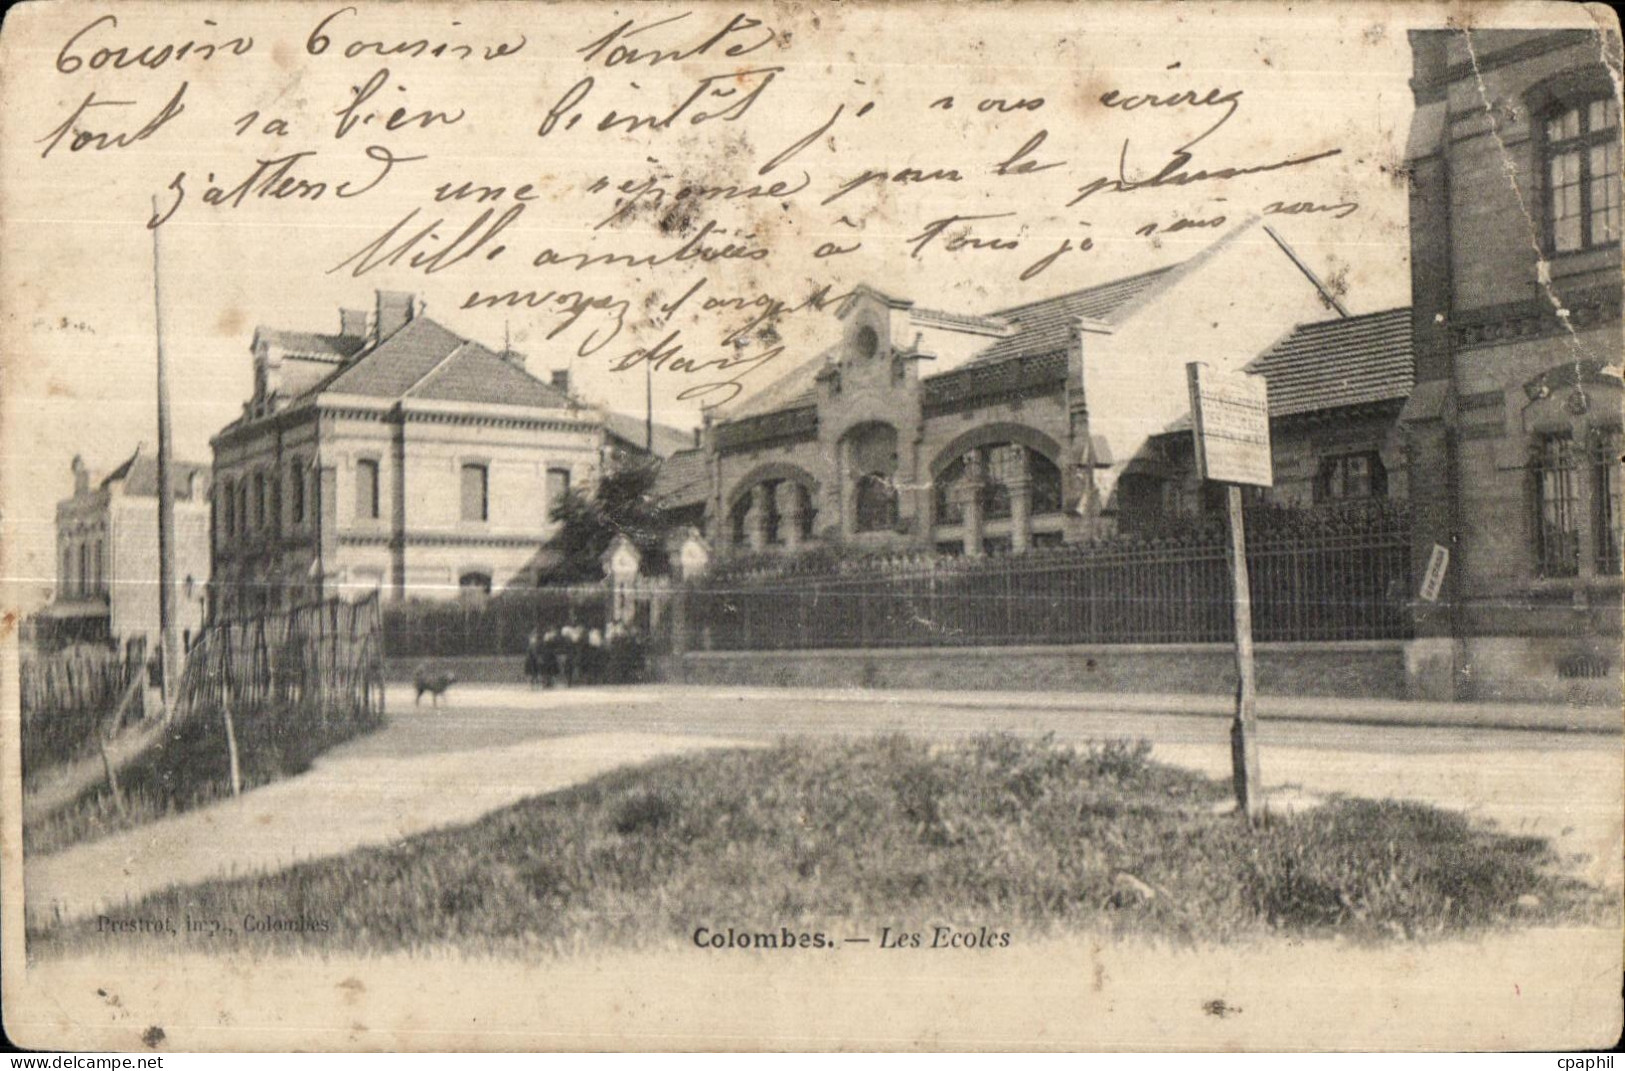 Cousin Cousine tante
tout va bien bientôt je vous écrirez
J'attend une réponse pour la plume
Mille amitiées à Tous je vais vous
envoyez l'argent
Prestrot, imp., Colombes
Colombes. — Les Ecoles
www.delcampe.net
cpaphil